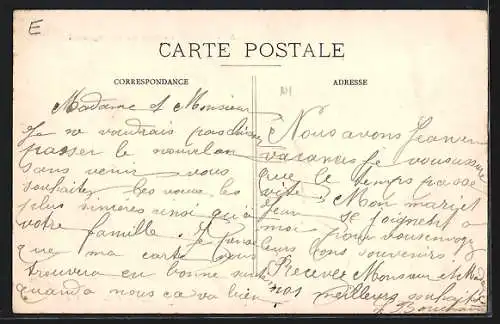 E
CARTE POSTALE
CORRESPONDANCE
ADRESSE
Madame et Monsieur
Je ne voudrais pas laisser
passer le nouvel an
sans venir vous
souhaiter les vœux les
plus sincères ainsi qu'à
votre famille. Je pense
que ma carte vous
trouvera en bonne santé
quand à nous ca va bien
Nous avons Jean en
vacances je vous assure
que le temps passe
vite. Mon mari et
Jean se joignent à
moi pour vous envoyer
leurs bons souvenirs
Recevez Monsieur et Madame
nos meilleurs souhaits